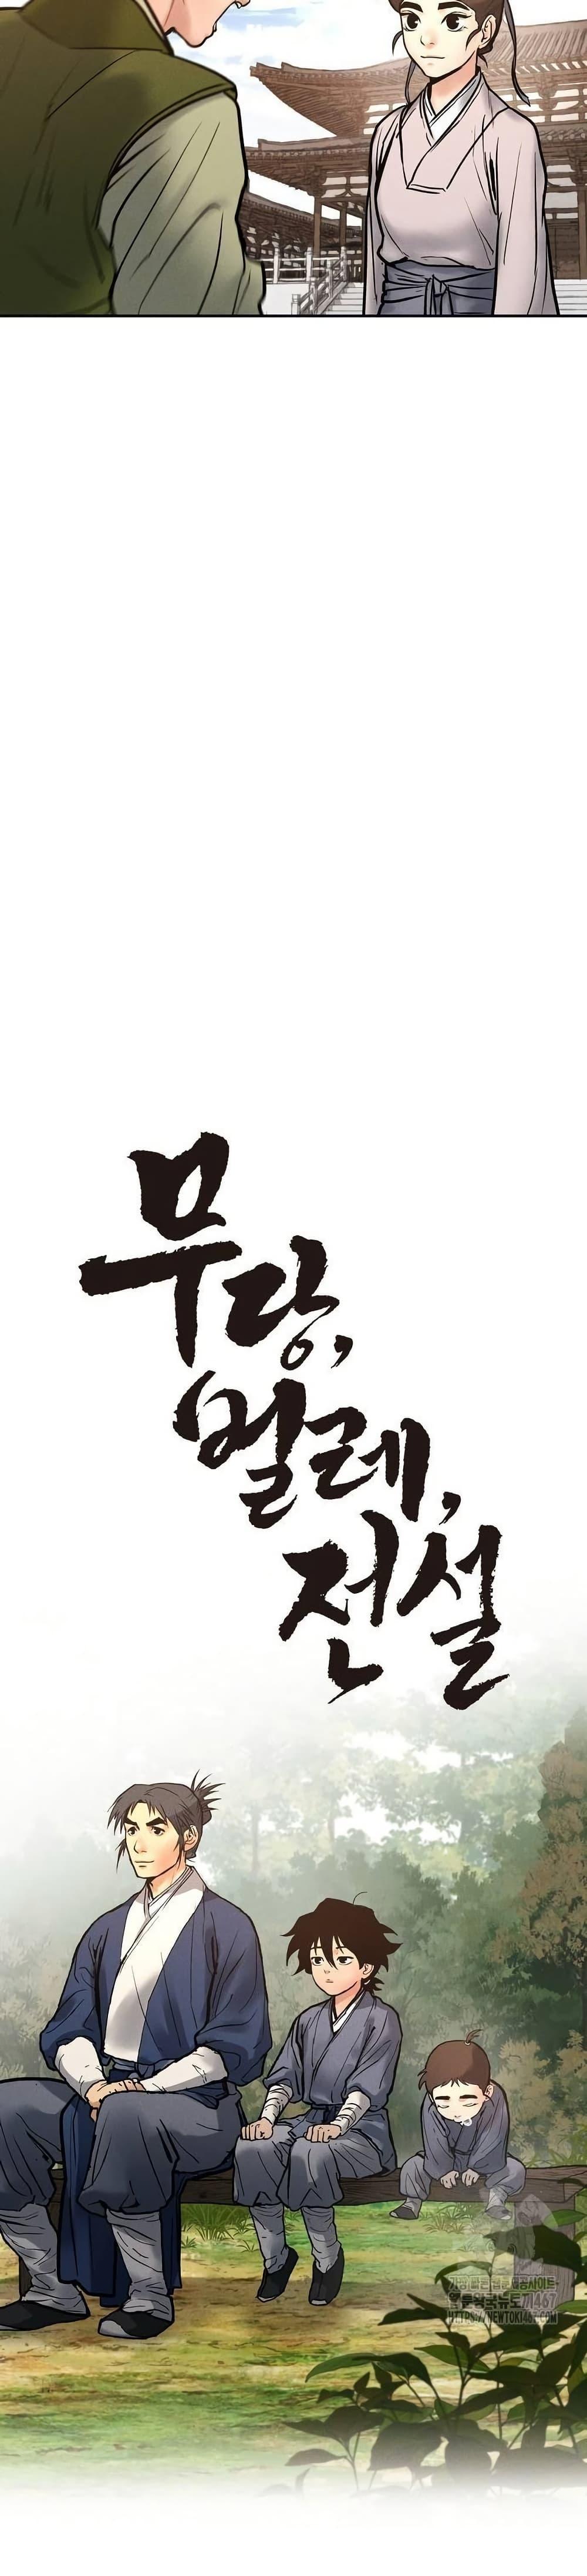 무당,
벌레,
전설
가장 빠른 웹툰제공사이트
웹툰왕국뉴토끼467
HTTPS://NEWTOKI467.COM